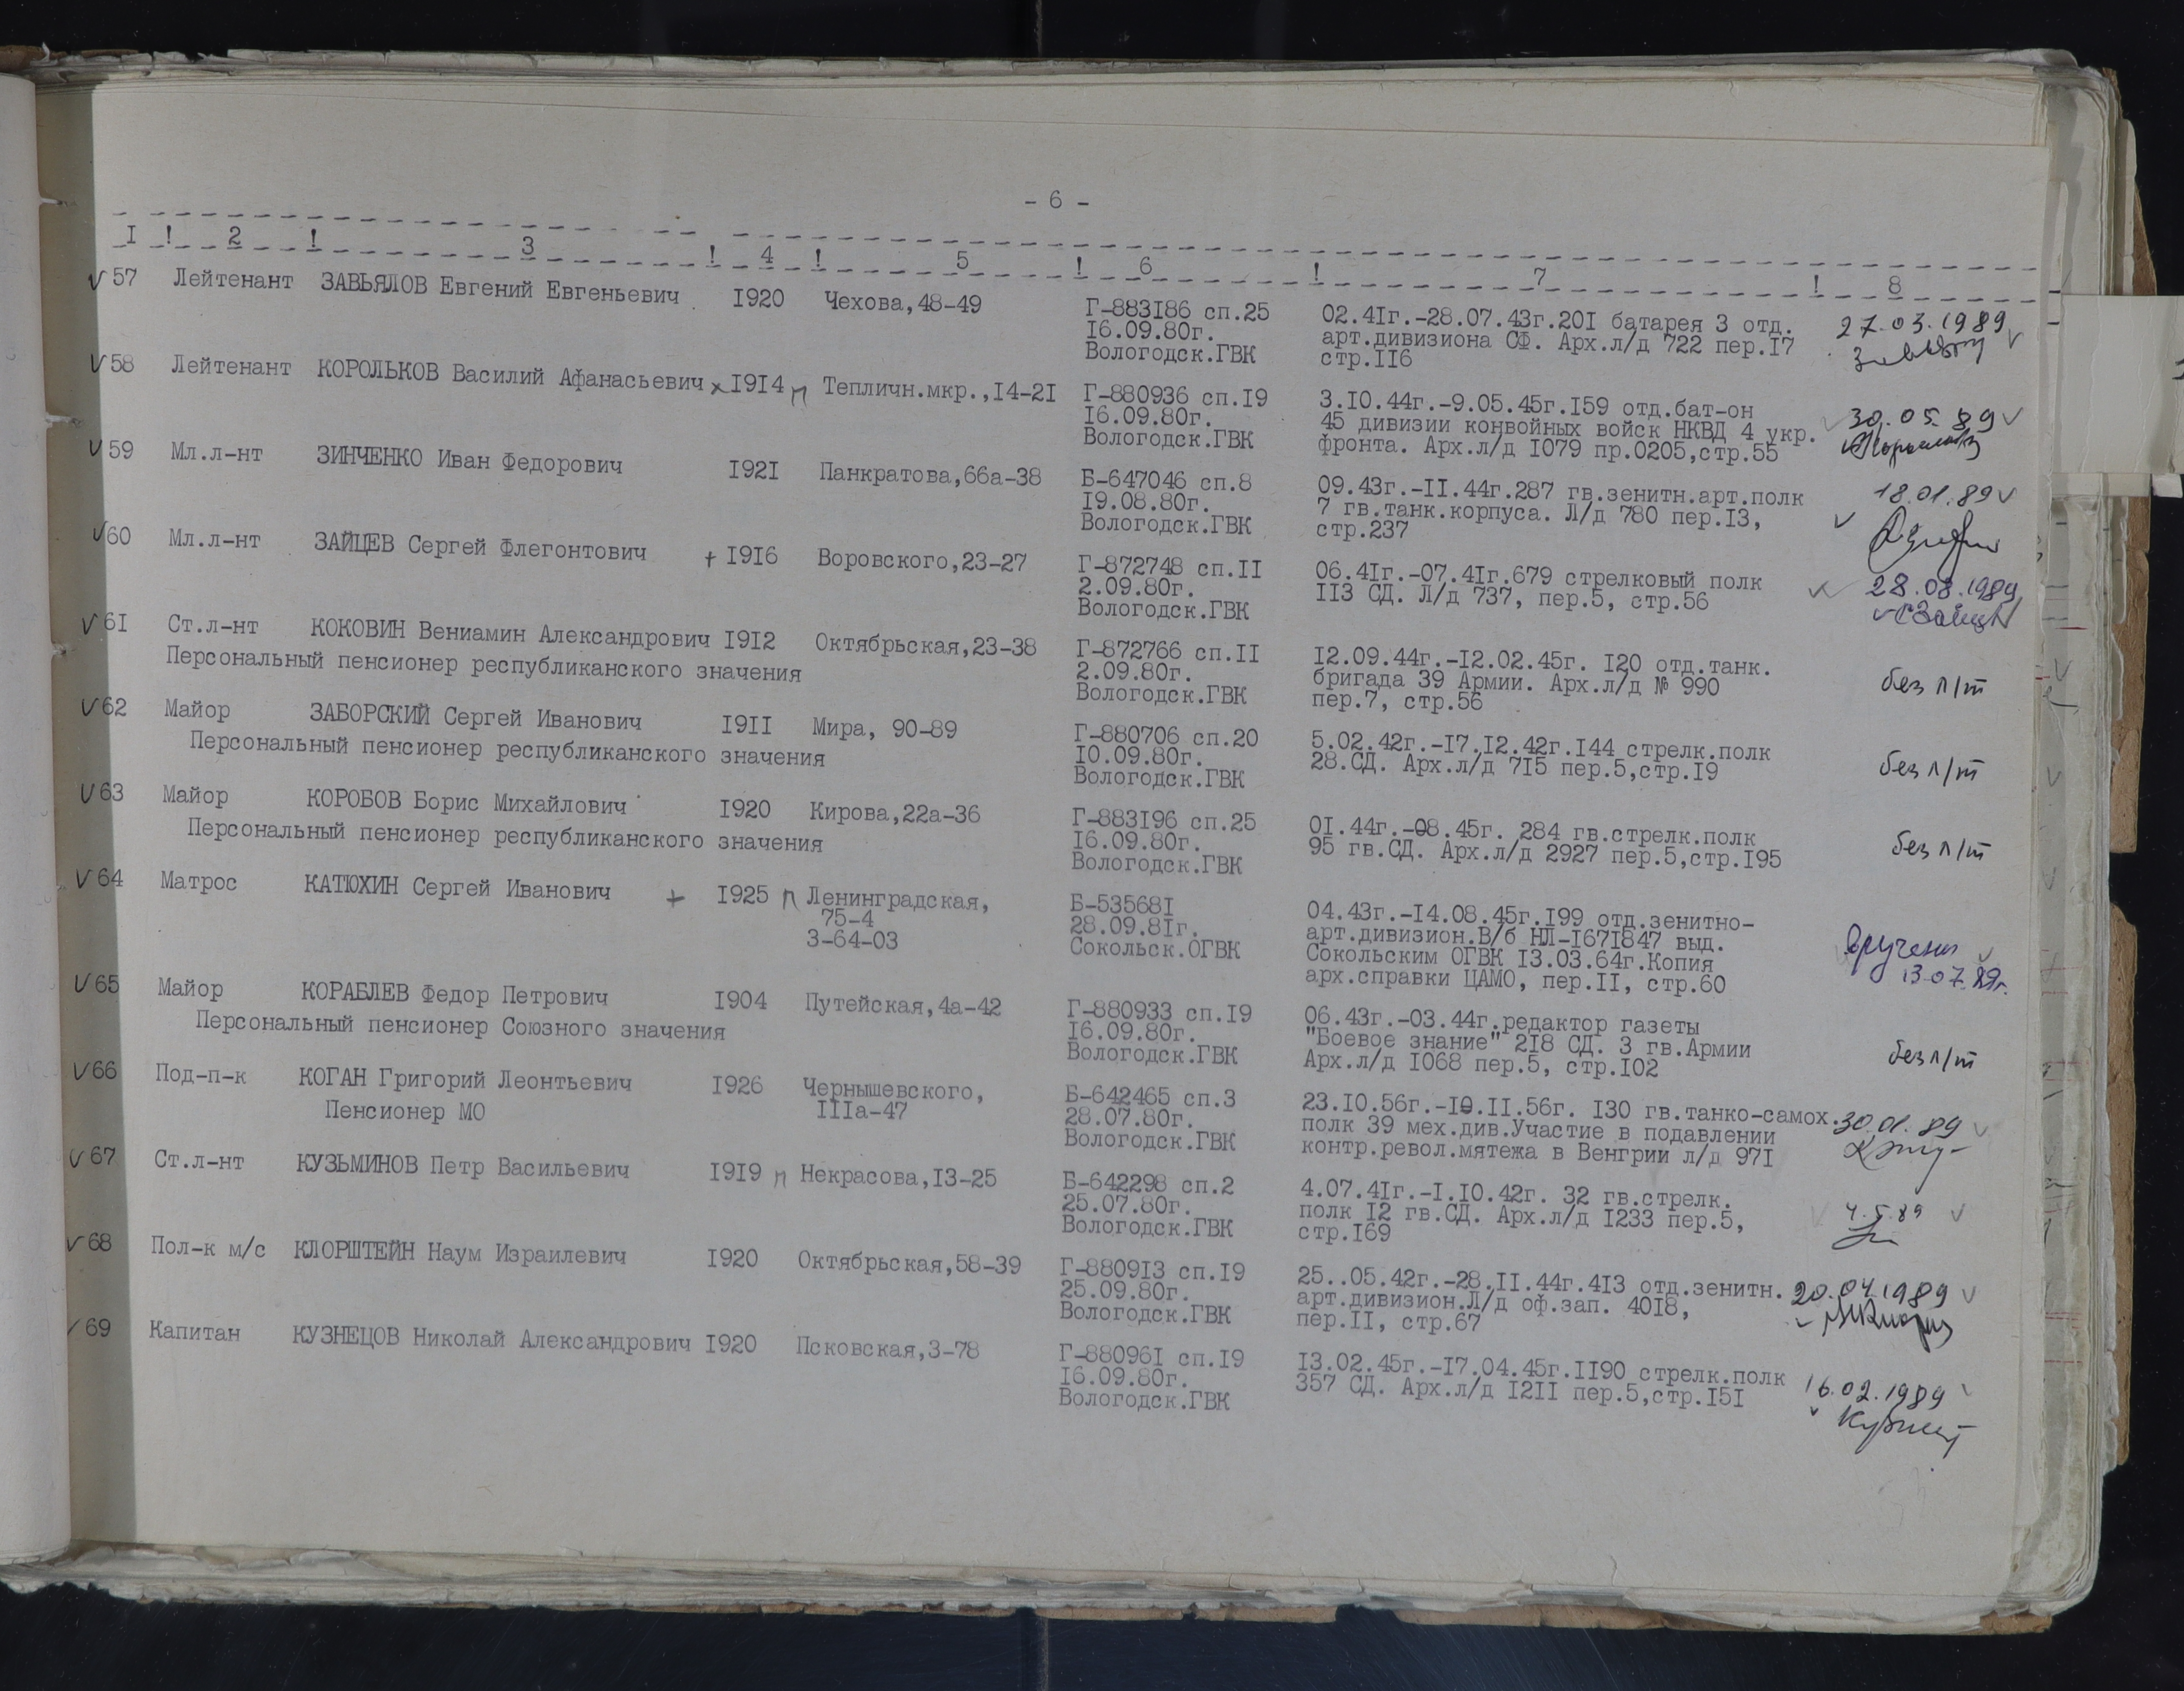 - 6 -
I ! 2 ! 3 ! 4 ! 5 ! 6 ! 7 ! 8
57 Лейтенант ЗАВЬЯЛОВ Евгений Евгеньевич I920 Чехова,48-49 Г-883I86 сп.25 02.4Iг.-28.07.43г.20I батарея 3 отд. 27.03.1989
I6.09.80г. арт.дивизиона СФ. Арх.л/д 722 пер.I7
Вологодск.ГВК стр.II6
58 Лейтенант КОРОЛЬКОВ Василий Афанасьевич х I9I4 п Тепличн.мкр.,I4-2I Г-880936 сп.I9 3.I0.44г.-9.05.45г.I59 отд.бат-он 30.05.89
I6.09.80г. 45 дивизии конвойных войск НКВД 4 укр.
Вологодск.ГВК фронта. Арх.л/д I079 пр.0205,стр.55
59 Мл.л-нт ЗИНЧЕНКО Иван Федорович I92I Панкратова,66а-38 Б-647046 сп.8 09.43г.-II.44г.287 гв.зенитн.арт.полк 18.01.89
I9.08.80г. 7 гв.танк.корпуса. Л/д 780 пер.I3,
Вологодск.ГВК стр.237
60 Мл.л-нт ЗАЙЦЕВ Сергей Флегонтович + I9I6 Воровского,23-27 Г-872748 сп.II 06.4Iг.-07.4Iг.679 стрелковый полк 28.08.1989
2.09.80г. II3 СД. Л/д 737, пер.5, стр.56
Вологодск.ГВК
6I Ст.л-нт КОКОВИН Вениамин Александрович I9I2 Октябрьская,23-38 Г-872766 сп.II I2.09.44г.-I2.02.45г. I20 отд.танк.
Персональный пенсионер республиканского значения 2.09.80г. бригада 39 Армии. Арх.л/д № 990 без л/т
Вологодск.ГВК пер.7, стр.56
62 Майор ЗАБОРСКИЙ Сергей Иванович I9II Мира, 90-89 Г-880706 сп.20 5.02.42г.-I7.I2.42г.I44 стрелк.полк
Персональный пенсионер республиканского значения I0.09.80г. 28.СД. Арх.л/д 7I5 пер.5,стр.I9 без л/т
Вологодск.ГВК
63 Майор КОРОБОВ Борис Михайлович I920 Кирова,22а-36 Г-883I96 сп.25 0I.44г.-08.45г. 284 гв.стрелк.полк
Персональный пенсионер республиканского значения I6.09.80г. 95 гв.СД. Арх.л/д 2927 пер.5,стр.I95 без л/т
Вологодск.ГВК
64 Матрос КАТЮХИН Сергей Иванович + I925 п Ленинградская, Б-53568I 04.43г.-I4.08.45г.I99 отд.зенитно-
75-4 28.09.8Iг. арт.дивизион.В/б НЛ-I67I847 выд. вручена
3-64-03 Сокольск.ОГВК Сокольским ОГВК I3.03.64г.Копия 13.07.89г.
арх.справки ЦАМО, пер.II, стр.60
65 Майор КОРАБЛЕВ Федор Петрович I904 Путейская,4а-42 Г-880933 сп.I9 06.43г.-03.44г.редактор газеты
Персональный пенсионер Союзного значения I6.09.80г. "Боевое знание" 2I8 СД. 3 гв.Армии
Вологодск.ГВК Арх.л/д I068 пер.5, стр.I02 без л/т
66 Под-п-к КОГАН Григорий Леонтьевич I926 Чернышевского, Б-642465 сп.3 23.I0.56г.-I0.II.56г. I30 гв.танко-самох. 30.01.89
Пенсионер МО IIIа-47 28.07.80г. полк 39 мех.див.Участие в подавлении
Вологодск.ГВК контр.револ.мятежа в Венгрии л/д 97I
67 Ст.л-нт КУЗЬМИНОВ Петр Васильевич I9I9 п Некрасова,I3-25 Б-642298 сп.2 4.07.4Iг.-I.I0.42г. 32 гв.стрелк.
25.07.80г. полк I2 гв.СД. Арх.л/д I233 пер.5, 4.5.89
Вологодск.ГВК стр.I69
68 Пол-к м/с КЛОРШТЕЙН Наум Израилевич I920 Октябрьская,58-39 Г-8809I3 сп.I9 25..05.42г.-28.II.44г.4I3 отд.зенитн. 20.04.1989
25.09.80г. арт.дивизион.Л/д оф.зап. 40I8,
Вологодск.ГВК пер.II, стр.67
69 Капитан КУЗНЕЦОВ Николай Александрович I920 Псковская,3-78 Г-88096I сп.I9 I3.02.45г.-I7.04.45г.II90 стрелк.полк
I6.09.80г. 357 СД. Арх.л/д I2II пер.5,стр.I5I 16.02.1989
Вологодск.ГВК